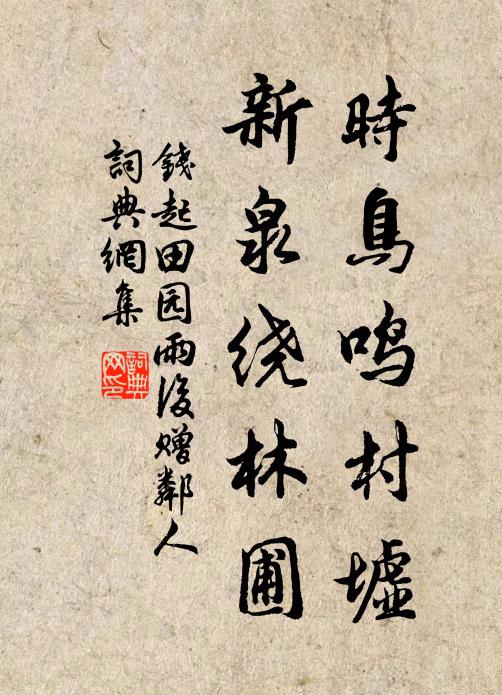 時鳥鸣村墟
新泉绕林圃
錢起田园雨後贈鄰人
詞典網集
詞典
网印